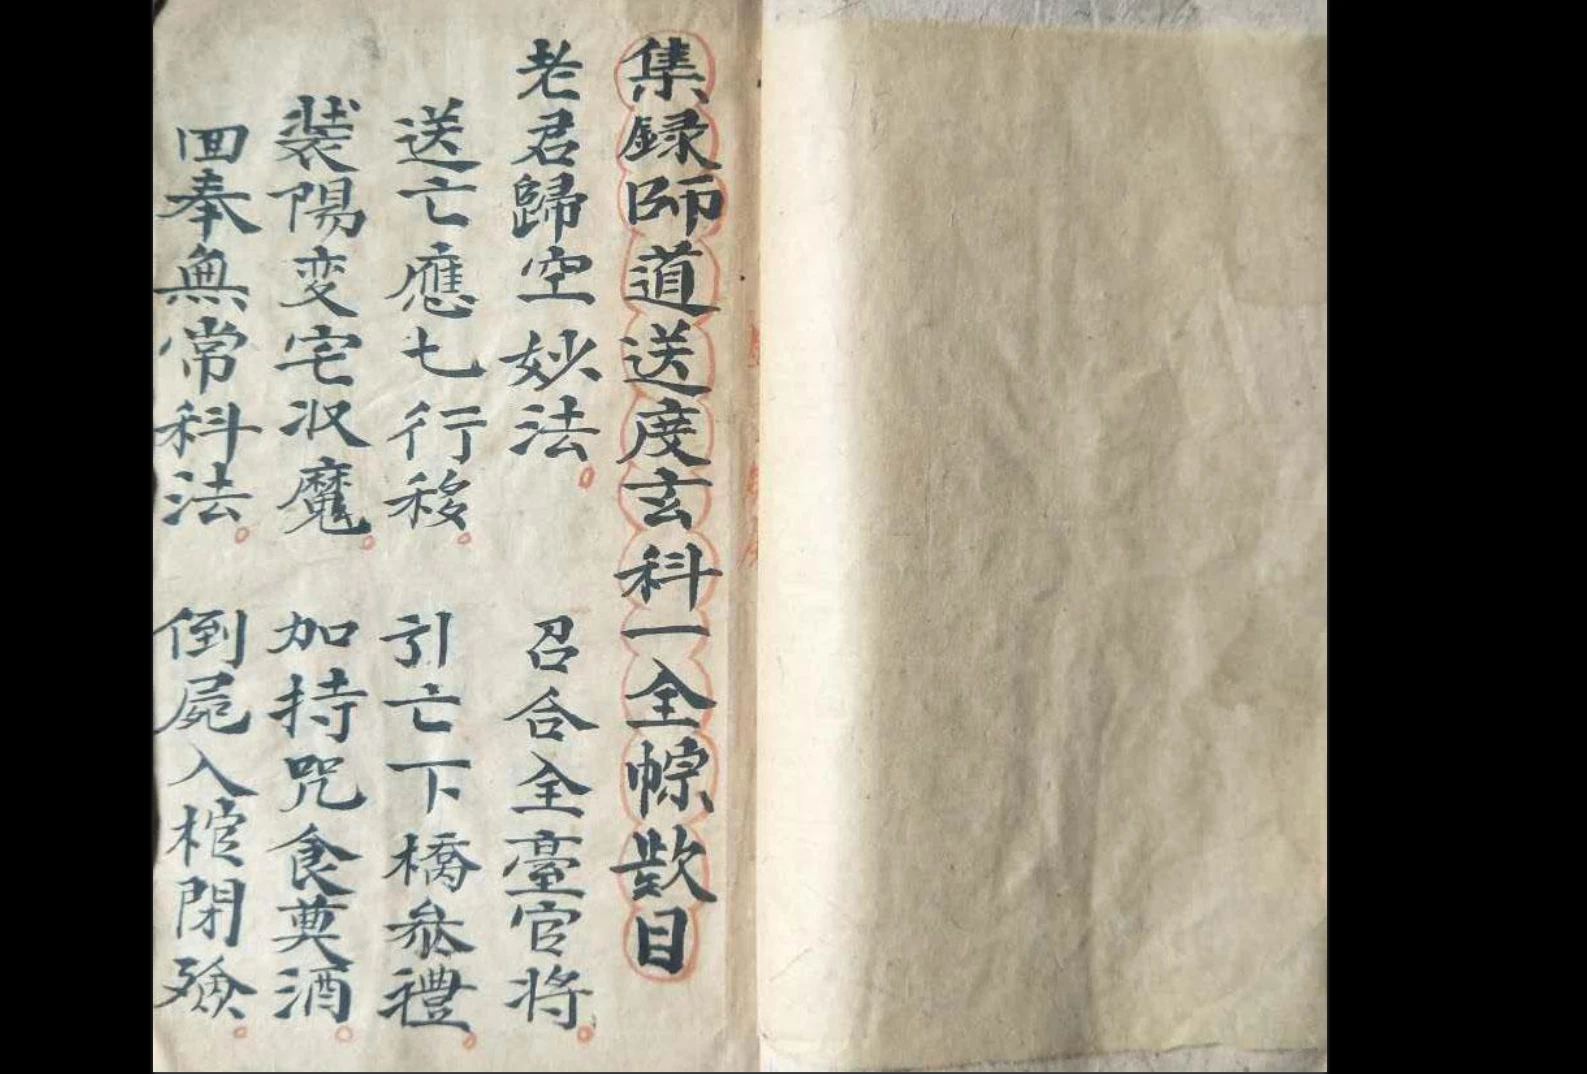 集録師道送度玄科一全幖数目
老君歸空妙法。 召合全臺官将。
送亡應七行移。 引亡下橋叅禮。
装陽变宅収魔。 加持咒食奠酒。
回奉無常科法。 倒屍入棺閉殮。